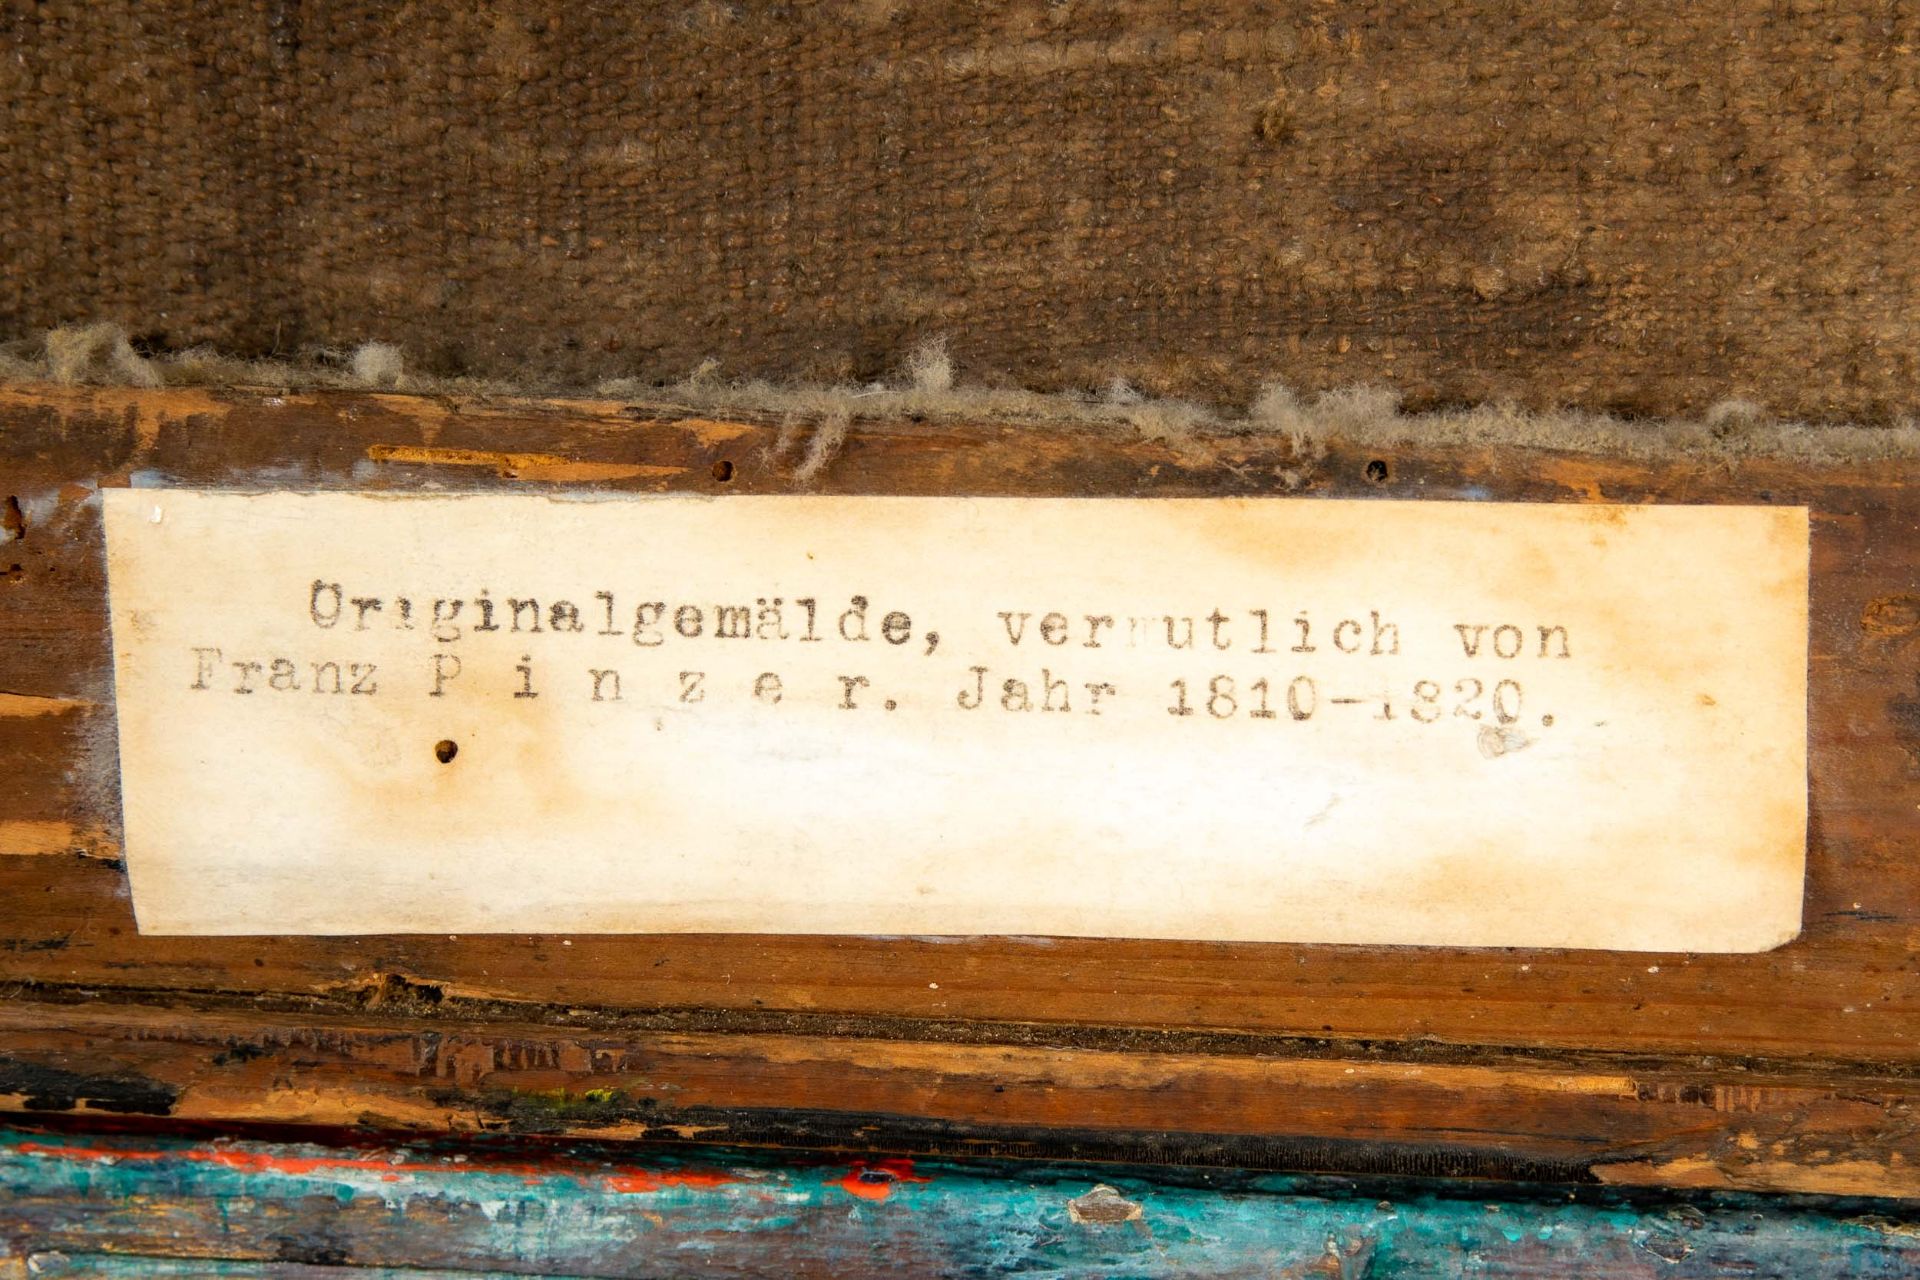 Originalgemälde, vermutlich von
Franz P i n z e r. Jahr 1810-1820.